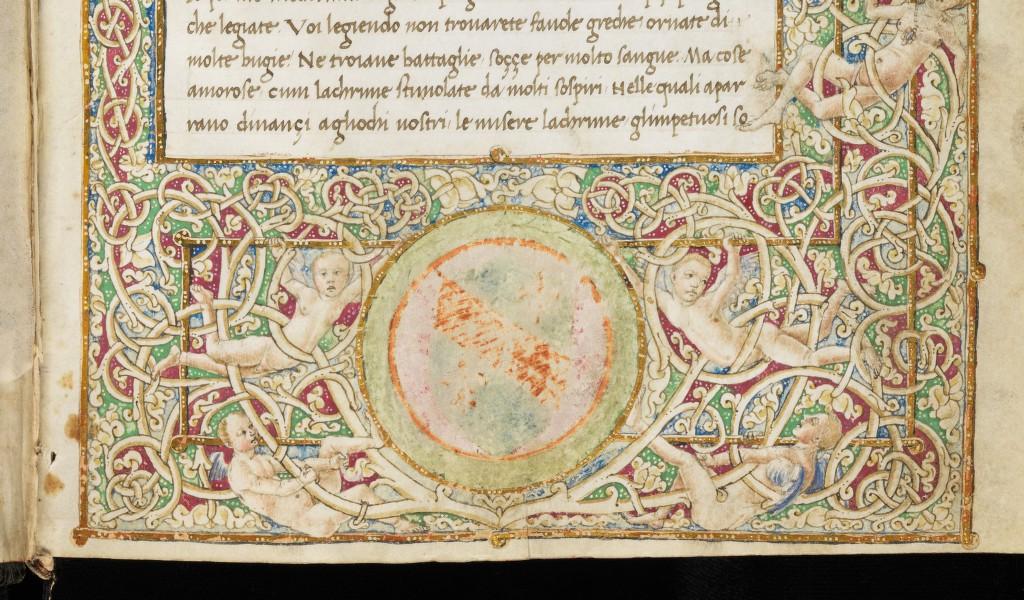 che legiate. Voi legiendo non trouarete fauole greche ornate di
molte bugie. Ne troiane battaglie soççe per molto sangue. Ma cose
amorose cum lachrime stimolate da molti sospiri. Nelle quali apar
rano dinançi aghochi uostri. le misere lachrime glimpetuosi so